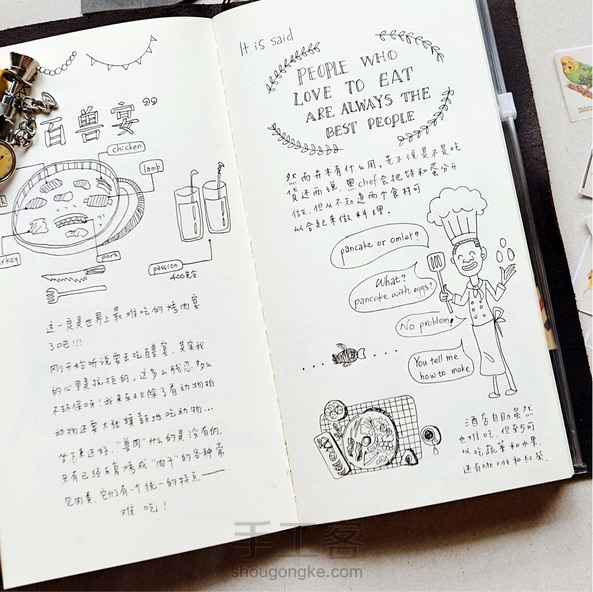 百兽宴”
chicken
lamb
pork
passion
400毫升
这一定是世界上最难吃的烤肉宴
了吧!!!
刚开始听说要去吃百兽宴,其实我
的心里是抗拒的。这多么残忍,多么
不环保呀!我来非洲除了看动物拍
动物还要大张旗鼓地吃动物...
“兽肉”什么的是没有的,
只有已经烤成“肉干”的各种常
见肉类,它们有一个统一的特点——
难吃!
It is said
PEOPLE WHO
LOVE TO EAT
ARE ALWAYS THE
BEST PEOPLE
然而并木有什么用。若不说是不是吃
货还两说,黑chef会把饼和蛋分开
做,但从不知道两个食材可
以合起来做料理。
pancake or omlet?
What?
pancake with eggs?
No problem,
You tell me
how to make
酒店自助虽然
也难吃,但至少可
以吃蔬菜和水果,
还有咖啡和红茶.
手工客
shougongke.com